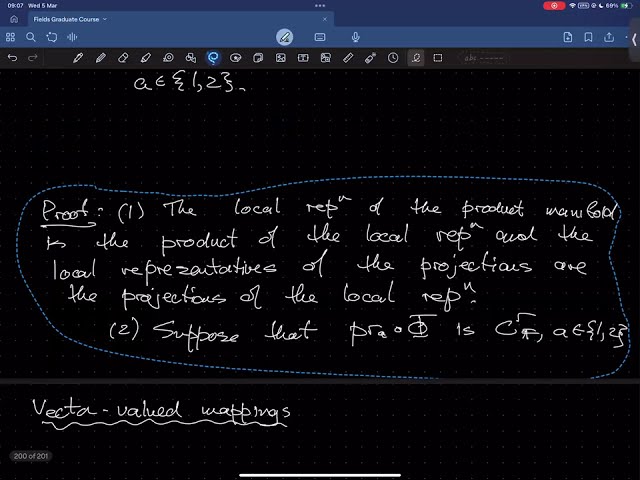 09:07 Wed 5 Mar
86%
Fields Graduate Course
a ∈ {1,2}.
Proof: (1) The local repⁿ of the product manifold
is the product of the local repⁿ and the
local representatives of the projections are
the projections of the local repⁿ.
(2) Suppose that prₐ∘Φ is C^r, a∈{1,2}
Vector-valued mappings
200 of 201